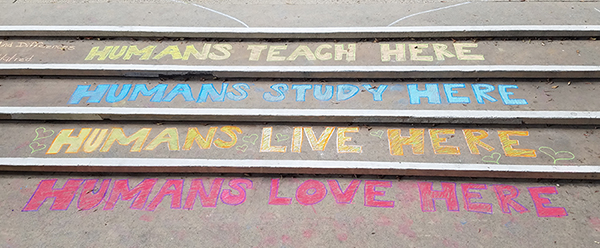 HUMANS TEACH HERE
HUMANS STUDY HERE
HUMANS LIVE HERE
HUMANS LOVE HERE